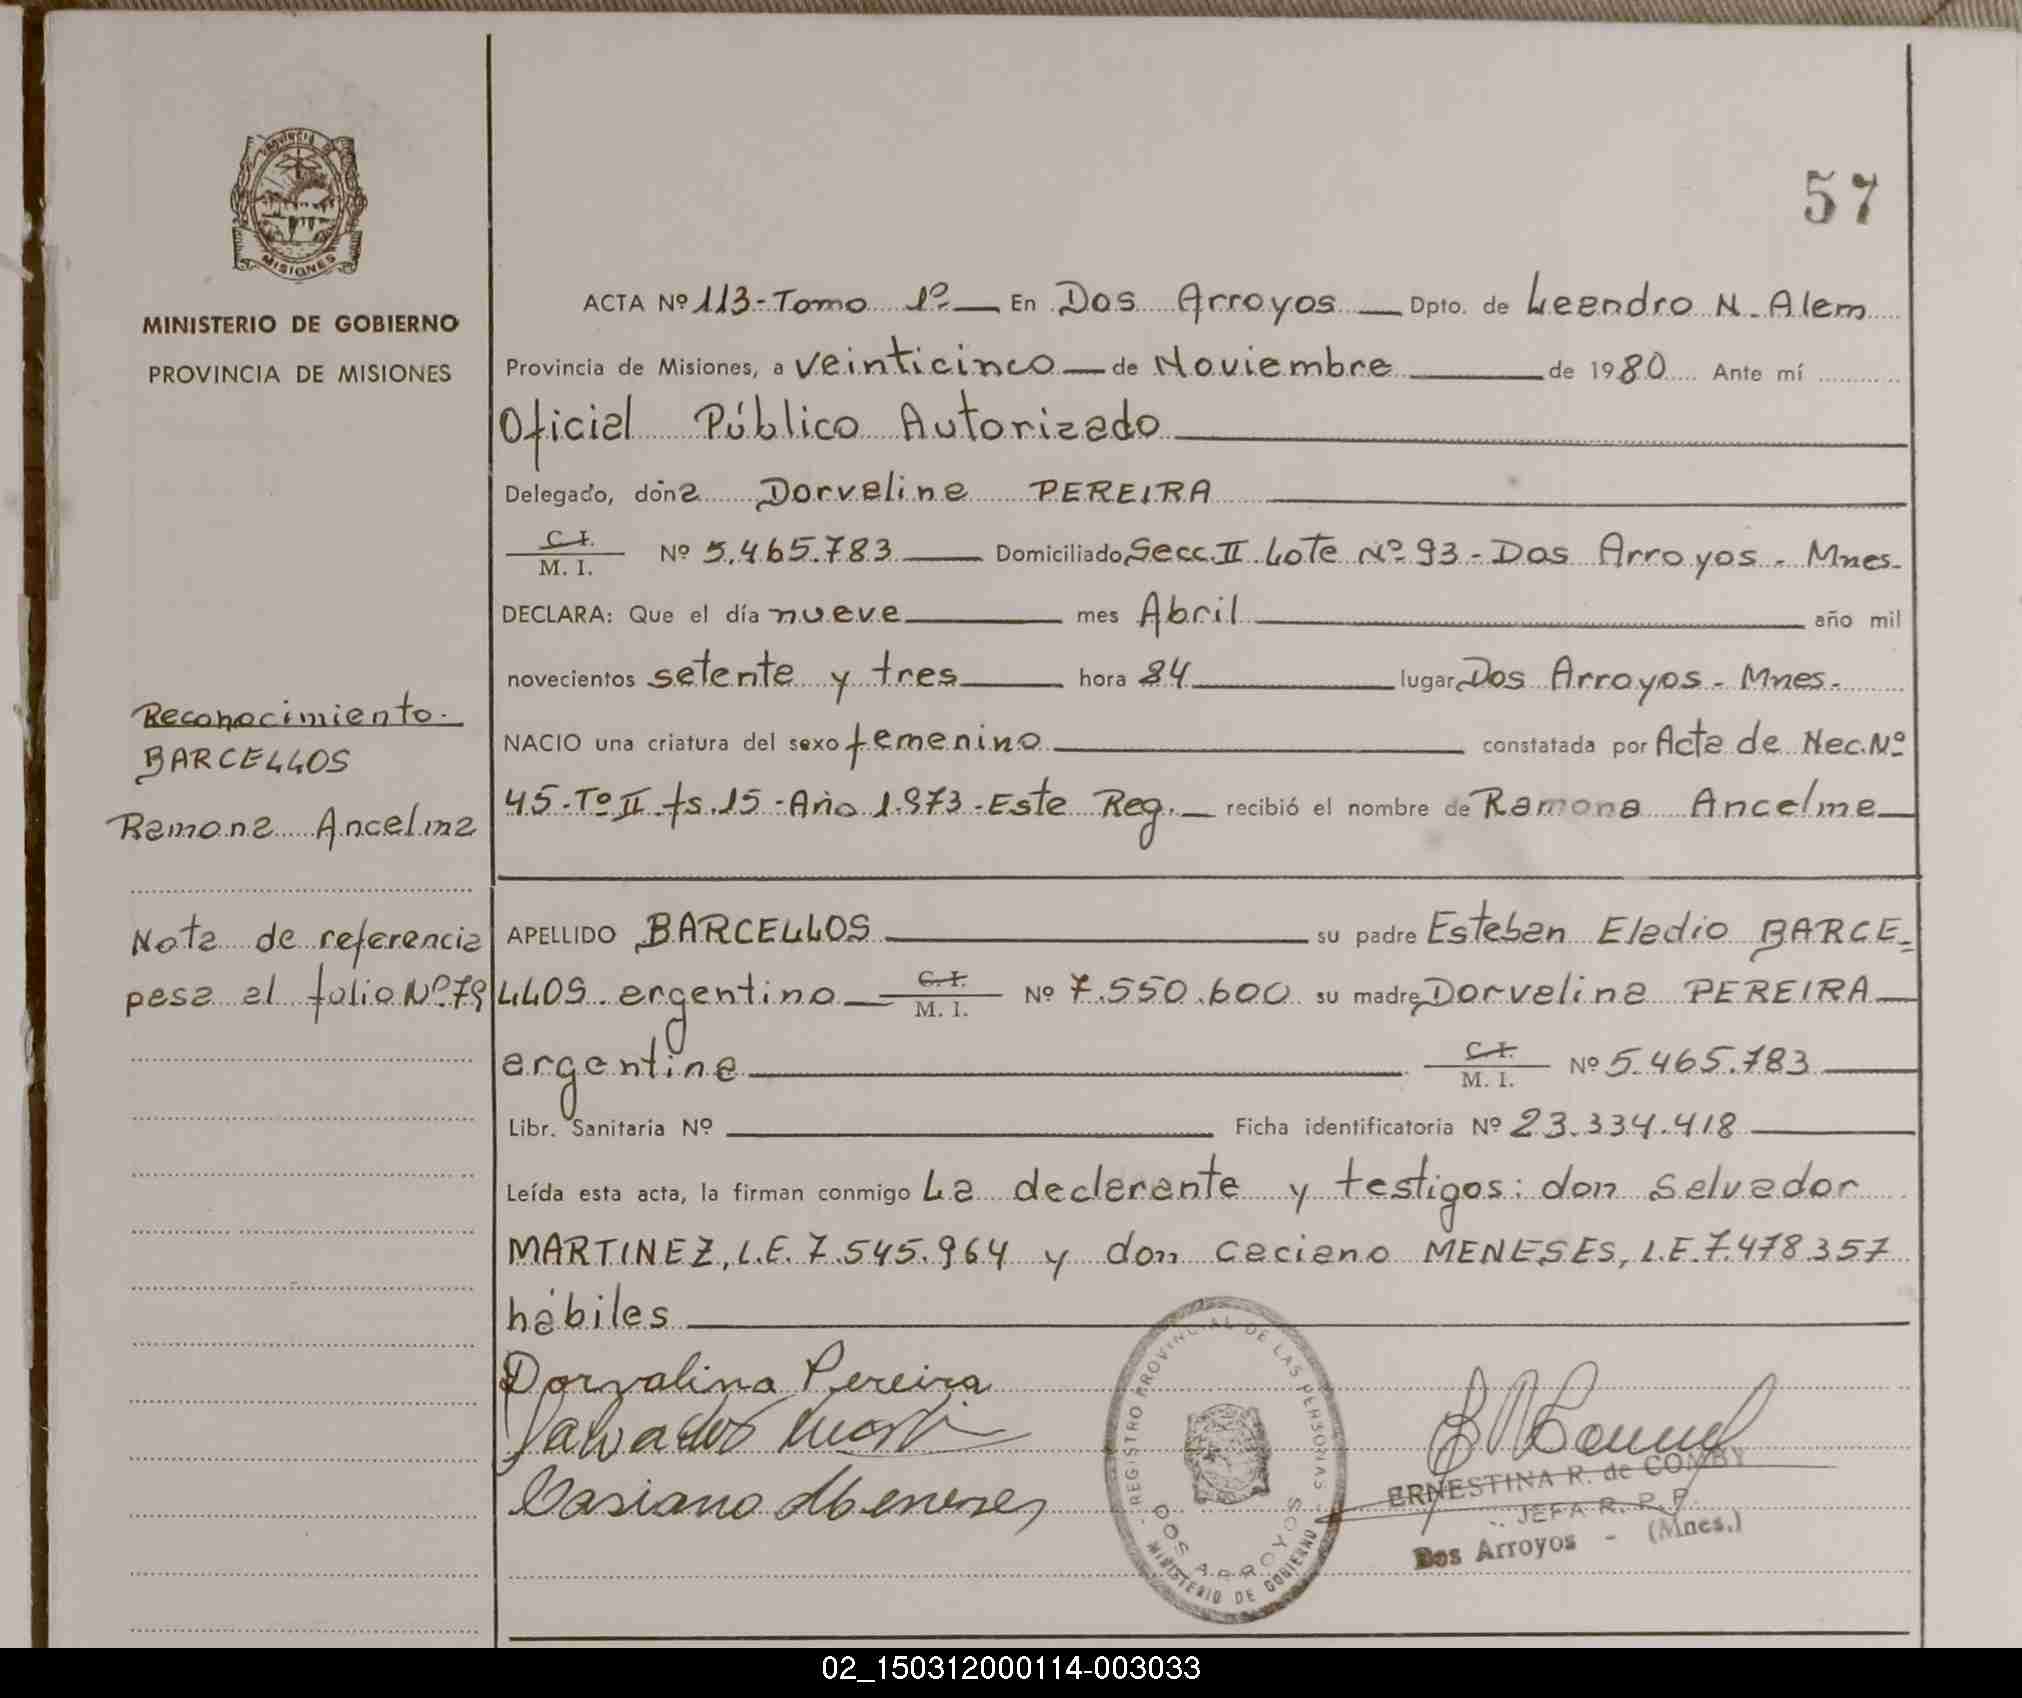 57
PROVINCIA DE
MISIONES
MINISTERIO DE GOBIERNO
PROVINCIA DE MISIONES
ACTA Nº 113-Tomo 1º En Dos Arroyos Dpto. de Leandro N. Alem
Provincia de Misiones, a veinticinco de Noviembre de 1980 Ante mí
Oficial Público Autorizado
Delegado, doña Dorvalina PEREIRA
C.I. M. I. Nº 5.465.783 Domiciliado Secc. II Lote Nº 93 - Dos Arroyos - Mnes.
DECLARA: Que el día nueve mes Abril año mil
novecientos setenta y tres hora 24 lugar Dos Arroyos - Mnes.
NACIO una criatura del sexo femenino constatada por Acta de Nac. Nº
45-Tº II fs. 15 - Año 1.973 - Este Reg. recibió el nombre de Ramona Ancelma
Reconocimiento.
BARCELLOS
Ramona Ancelma
Nota de referencia
pasa al folio Nº 79
APELLIDO BARCELLOS su padre Esteban Eladio BARCE-
LLOS argentino C.I. M. I. Nº 7.550.600 su madre Dorvalina PEREIRA
argentina C.I. M. I. Nº 5.465.783
Libr. Sanitaria Nº Ficha identificatoria Nº 23.334.418
Leída esta acta, la firman conmigo La declarante y testigos: don Salvador
MARTINEZ, L.E. 7.545.964 y don Caciano MENESES, L.E. 7.478.357
hábiles
Dorvalina Pereira
Salvador
Casiano Meneses
REGISTRO PROVINCIAL DE LAS PERSONAS
DOS ARROYOS
MINISTERIO DE GOBIERNO
ERNESTINA R. de COMBY
JEFA R. P. P.
Dos Arroyos - (Mnes.)
02_150312000114-003033